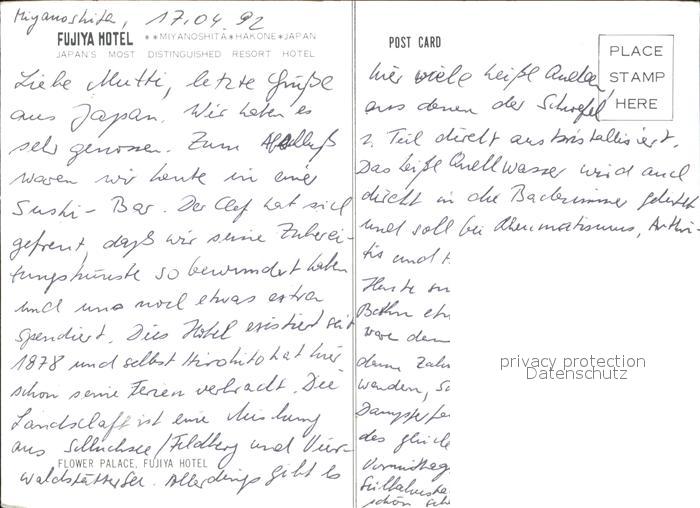 Miyanoshita, 17.04.92
FUJIYA HOTEL ★★MIYANOSHITA★HAKONE★JAPAN
JAPAN'S MOST DISTINGUISHED RESORT HOTEL
Liebe Mutti, letzte Grüße
aus Japan. Wir haben es
sehr genossen. Zum Abschluß
waren wir heute in einer
Sushi-Bar. Der Chef hat sich
gefreut, daß wir seine Zuberei-
tungskünste so bewundert haben
und uns noch etwas extra
spendiert. Dies Hotel existiert seit
1878 und selbst Hirohito hat hier
schon seine Ferien verbracht. Die
Landschaft ist eine Mischung
aus Schluchsee/Feldberg und Vier-
FLOWER PALACE, FUJIYA HOTEL
waldstätter See. Allerdings gibt es
POST CARD
PLACE
STAMP
HERE
hier viele heiße Quellen,
aus denen der Schwefel
z. Teil direkt auskristallisiert.
Das heiße Quellwasser wird auch
direkt in die Badezimmer geleitet
und soll bei Rheumatismus, Arthri-
tis und
Heute
Bahn
dem
dann Zahn
Dampfer
des gleich
Vormittag
schön
privacy protection
Datenschutz